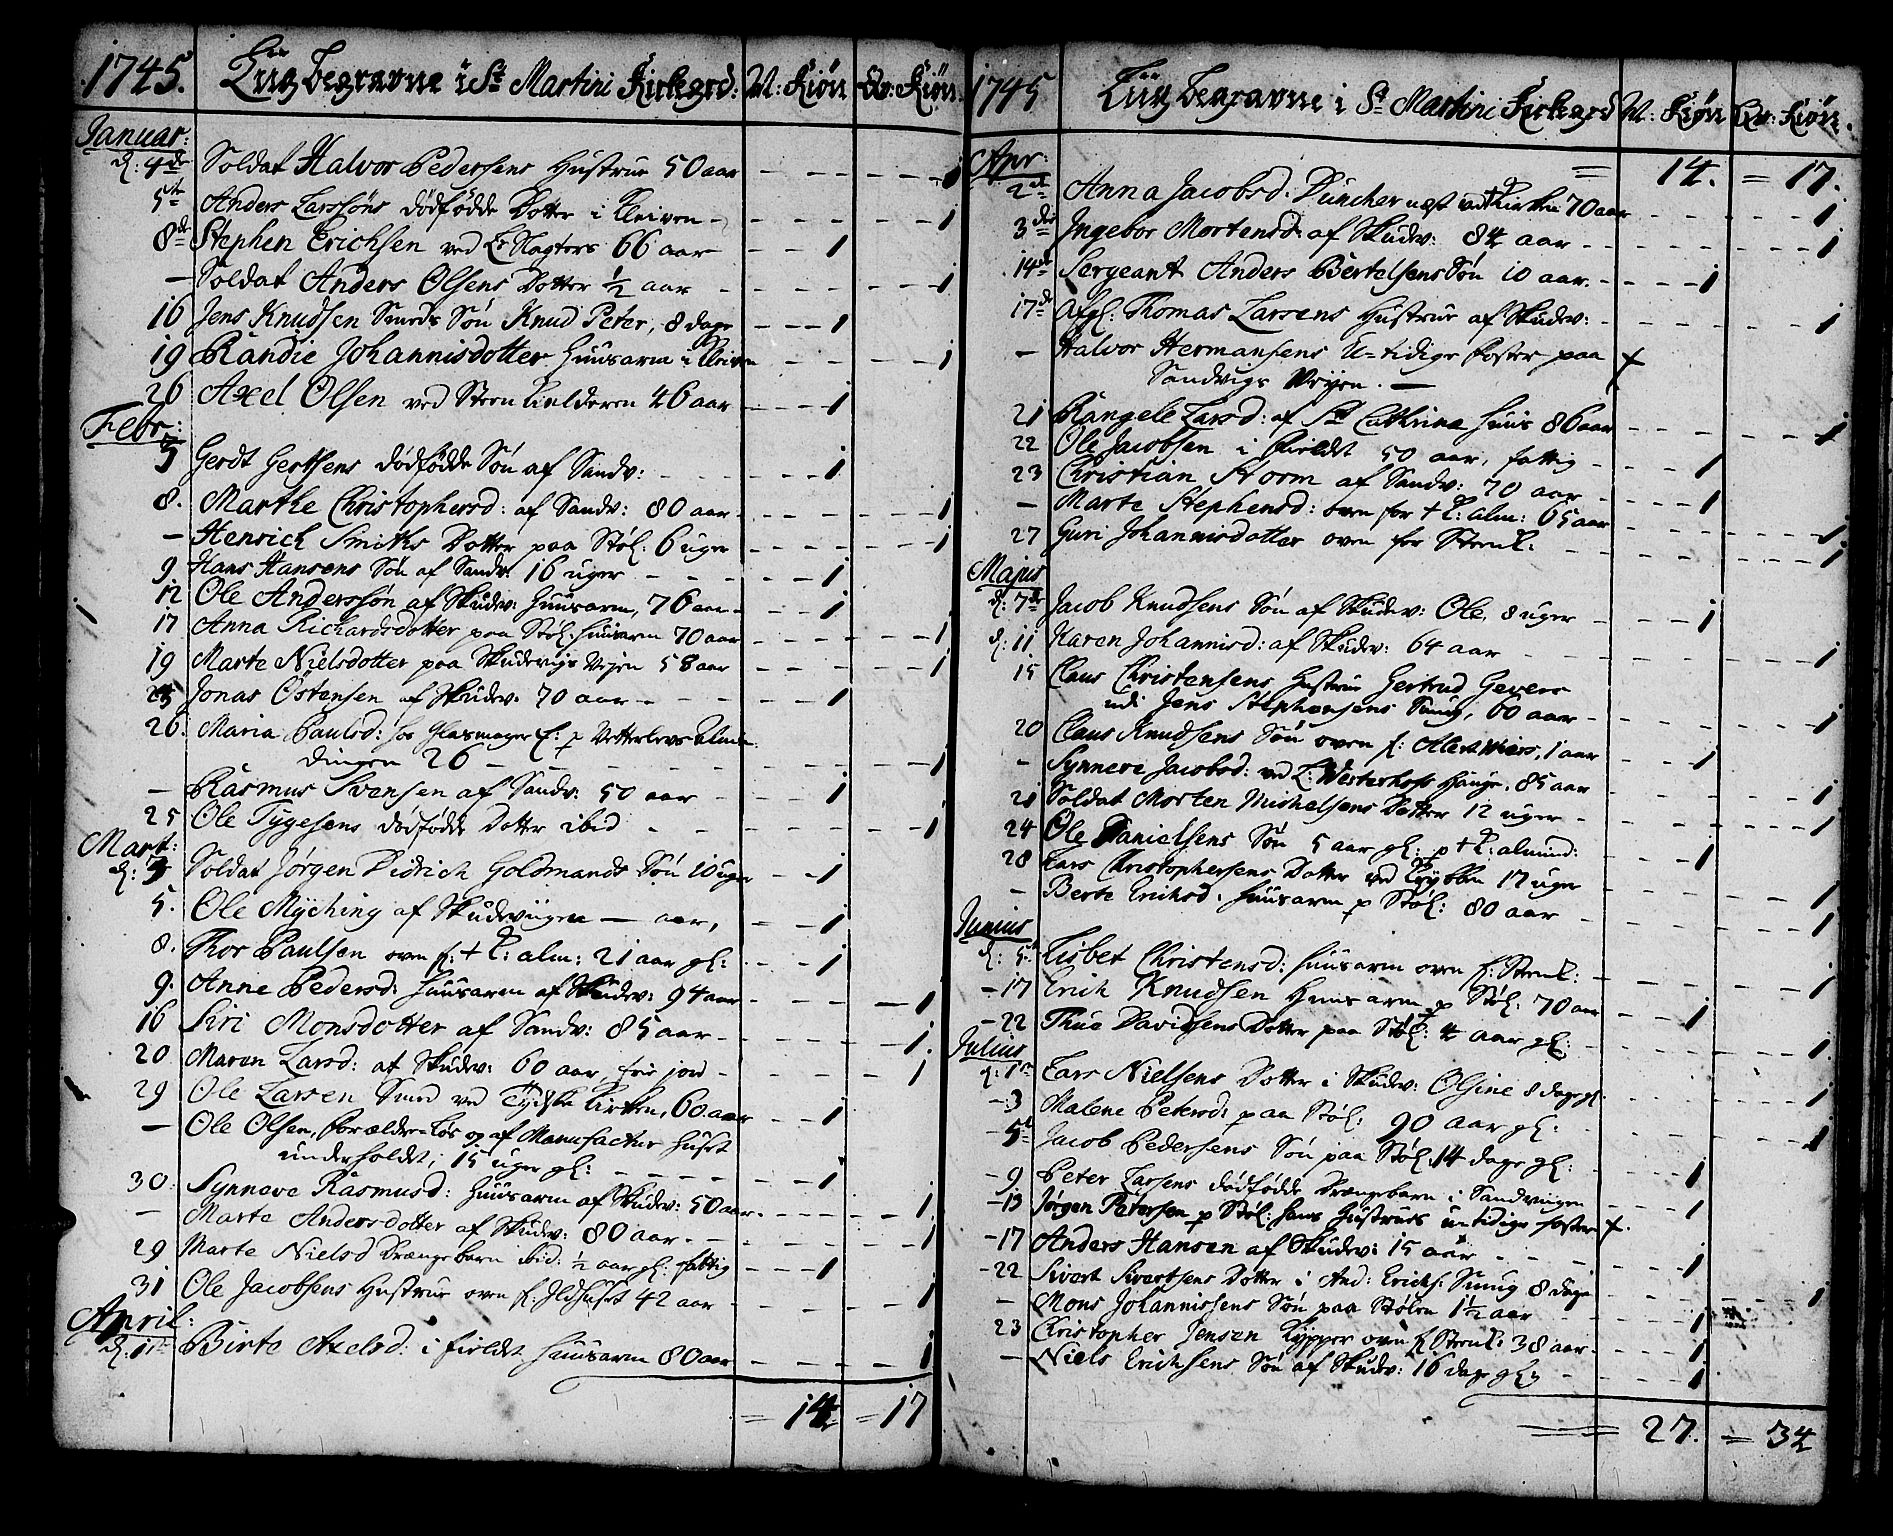 1745. Liig begravne i St Martini Kirkegrd: M: Kiøn Qv: Kiøn
Januar:
d: 4de Soldat Halvor Pedersens Hustrue 50 aar - - - - 1
5te Anders Larssøns dødfødde Dotter i Kleiven - - - - - 1
8de Stephen Erichsen ved Slagters 66 aar - - 1
— Soldat Anders Olsens Dotter ½ aar - - - - 1
16 Jens Knudsen Smeds Søn Knud Peter, 8 dage - - - 1
19 Randie Johannisdotter Huusarm i Kleiven - - - - 1
26 Axel Olsen ved Steenkielderen 46 aar - - - 1
Febr:
5 Gerdt Gertsens dødfødde Søn af Sandv: - - - 1
8. Marthe Christophersd: af Sandv: 80 aar - - - - 1
— Henrich Smiths Dotter paa Støl: 6 uger - - - - 1
9 Hans Hansens Søn af Sandv: 16 uger - - - - 1
12 Ole Anderssøn af Skudev: Huusarm, 76 aar - - - 1
17 Anna Richardsdotter paa Støl: Huusarm 70 aar - - - - 1
19 Marte Nielsdotter paa Skudevigs Vejen 58 aar - - - - 1
25 Jonas Østensen af Skudev: 70 aar - - - - 1
26. Maria Paulsd: hos Glasmager f: p Vetterlevs Alme
dingen 26 - - - - - - - 1
— Rasmus Svensen af Sandv: 50 aar - - - 1
25 Ole Tygesens dødfødde Dotter ibid - - - - - - 1
Mart:
d: 3 Soldat Jørgen Didrich Goldmands Søn 10 uger - - 1
5. Ole Myching af Skudeviigen — aar, - - 1
8. Thor Paulsen oven f: + K: alm: 21 aar gl: - - 1
9. Anne Pedersd: Huusarm af Skudev: 94 aar - - - - 1
16 Siri Monsdotter af Sandv: 85 aar - - - - - 1.
20 Maren Larsd: af Skudev: 60 aar, frie jord - - - - 1
29 Ole Larsen Smed ved Tydske Kirken, 60 aar - - 1
— Ole Olsen, forælder-løs og af Manufactur Huset
underholdet, 15 uger gl: - - - - - - 1
30. Synneve Rasmusd: Huusarm af Skudev: 50 aar. - - - - 1
— Marte Andersdotter af Skudev: 80 aar. - - - - - 1
29 Marte Nielsd Drængebarn ibid: ½ aar gl: fattig - - - 1
31 Ole Jacobsens Hustrue oven f: Ildhuset 42 aar - - - - 1
April:
d: 1te Birte Axelsd: i fieldet Huusarm 80 aar - - - - 1
= 14 = 17
1745 Liig begravne i St Martini Kirkegrd M: Kiøn Qv: Kiøn.
= 14. = 17.
Apr:
2et Anna Jacobsd: Düncher næst ved Kirken 70 aar - - - - 1
3die Ingebor Mortensd: af Skudev: 84 aar - - - - - 1
14de Sergeant Anders Bertelsens Søn 10 aar. - - - - 1
17de Afgl: Thomas Larsens Hustrue af Skudev: - - - - - 1
— Halvor Hermansens U=tidige foster paa +
Sandvigs Vejen. —
21 Rangele Larsd: af St Cathrina Huus 86 aar - - - - 1
22 Ole Jacobsen i fieldet 50 aar, fattig - - - 1
23 Christian Storm af Sandv: 70 aar - - - 1
— Marte Stephensd: oven for + K: alm: 65 aar - - - - 1
27 Guri Johannisdotter oven for Steenk: - - - - - 1
Majus
d: 7de Jacob Knudsens Søn af Skudev: Ole, 8 uger - - - 1
d: 11 Karen Johannisd: af Skudev: 64 aar - - - - - 1
15 Claus Christensens Hustrue Gertrud Gevers
udi Jens Stephensens Smug, 60 aar - - - - 1
20 Claus Knudsens Søn oven f: Albert Wiers, 1 aar - - - 1
— Synneve Jacobsd: ved L: Westerhofs Hauge, 85 aar - - - - 1
21 Soldat Morten Michelsens Dotter 12 uger - - - - 1
24 Ole Danielsens Søn 5 aar gl: p + K: almind: - - 1
28 Lars Christophersens Dotter ved Krybben 17 uger - - - - 1
— Berte Erichsd: Huusarm p Støl: 80 aar - - - - 1
Junius
d: 5t Lisbet Christensd: Huusarm oven f: Steenk: - - - - - 1
- 17 Erich Knudsen Huusarm p Støl: 70 aar - - 1
- 22 Thue Davidsens Dotter paa Støl: 4 aar gl: - - - - 1
Julius
d: 1te Lars Nielsens Dotter i Skudev: Olsine 8 dage gl: - - - 1
- 3 Malene Petersd: paa Støl: 90 aar gl: - - - - - 1
- 5t Jacob Pedersens Søn paa Støl: 14 dage gl: - - 1
- 9 Peter Larsens dødfødde Drængebarn i Sandviigen - - 1
- 13 Jørgen Petersen p Støl: hans Hustrues utidige foster +.
- 17 Anders Hansen af Skudev: 15 aar - - - - 1
- 22 Sivert Sivertsens Dotter i And: Erichs: Smug 8 dage - - - - 1
— Mons Johannissens Søn paa Stølen 1½ aar - - - 1
23 Christopher Jensen Kypper oven f Steenk: 38 aar - - - 1
— Niels Erichsens Søn af Skudev: 16 dage gl: - - - 1
= 27. = 34